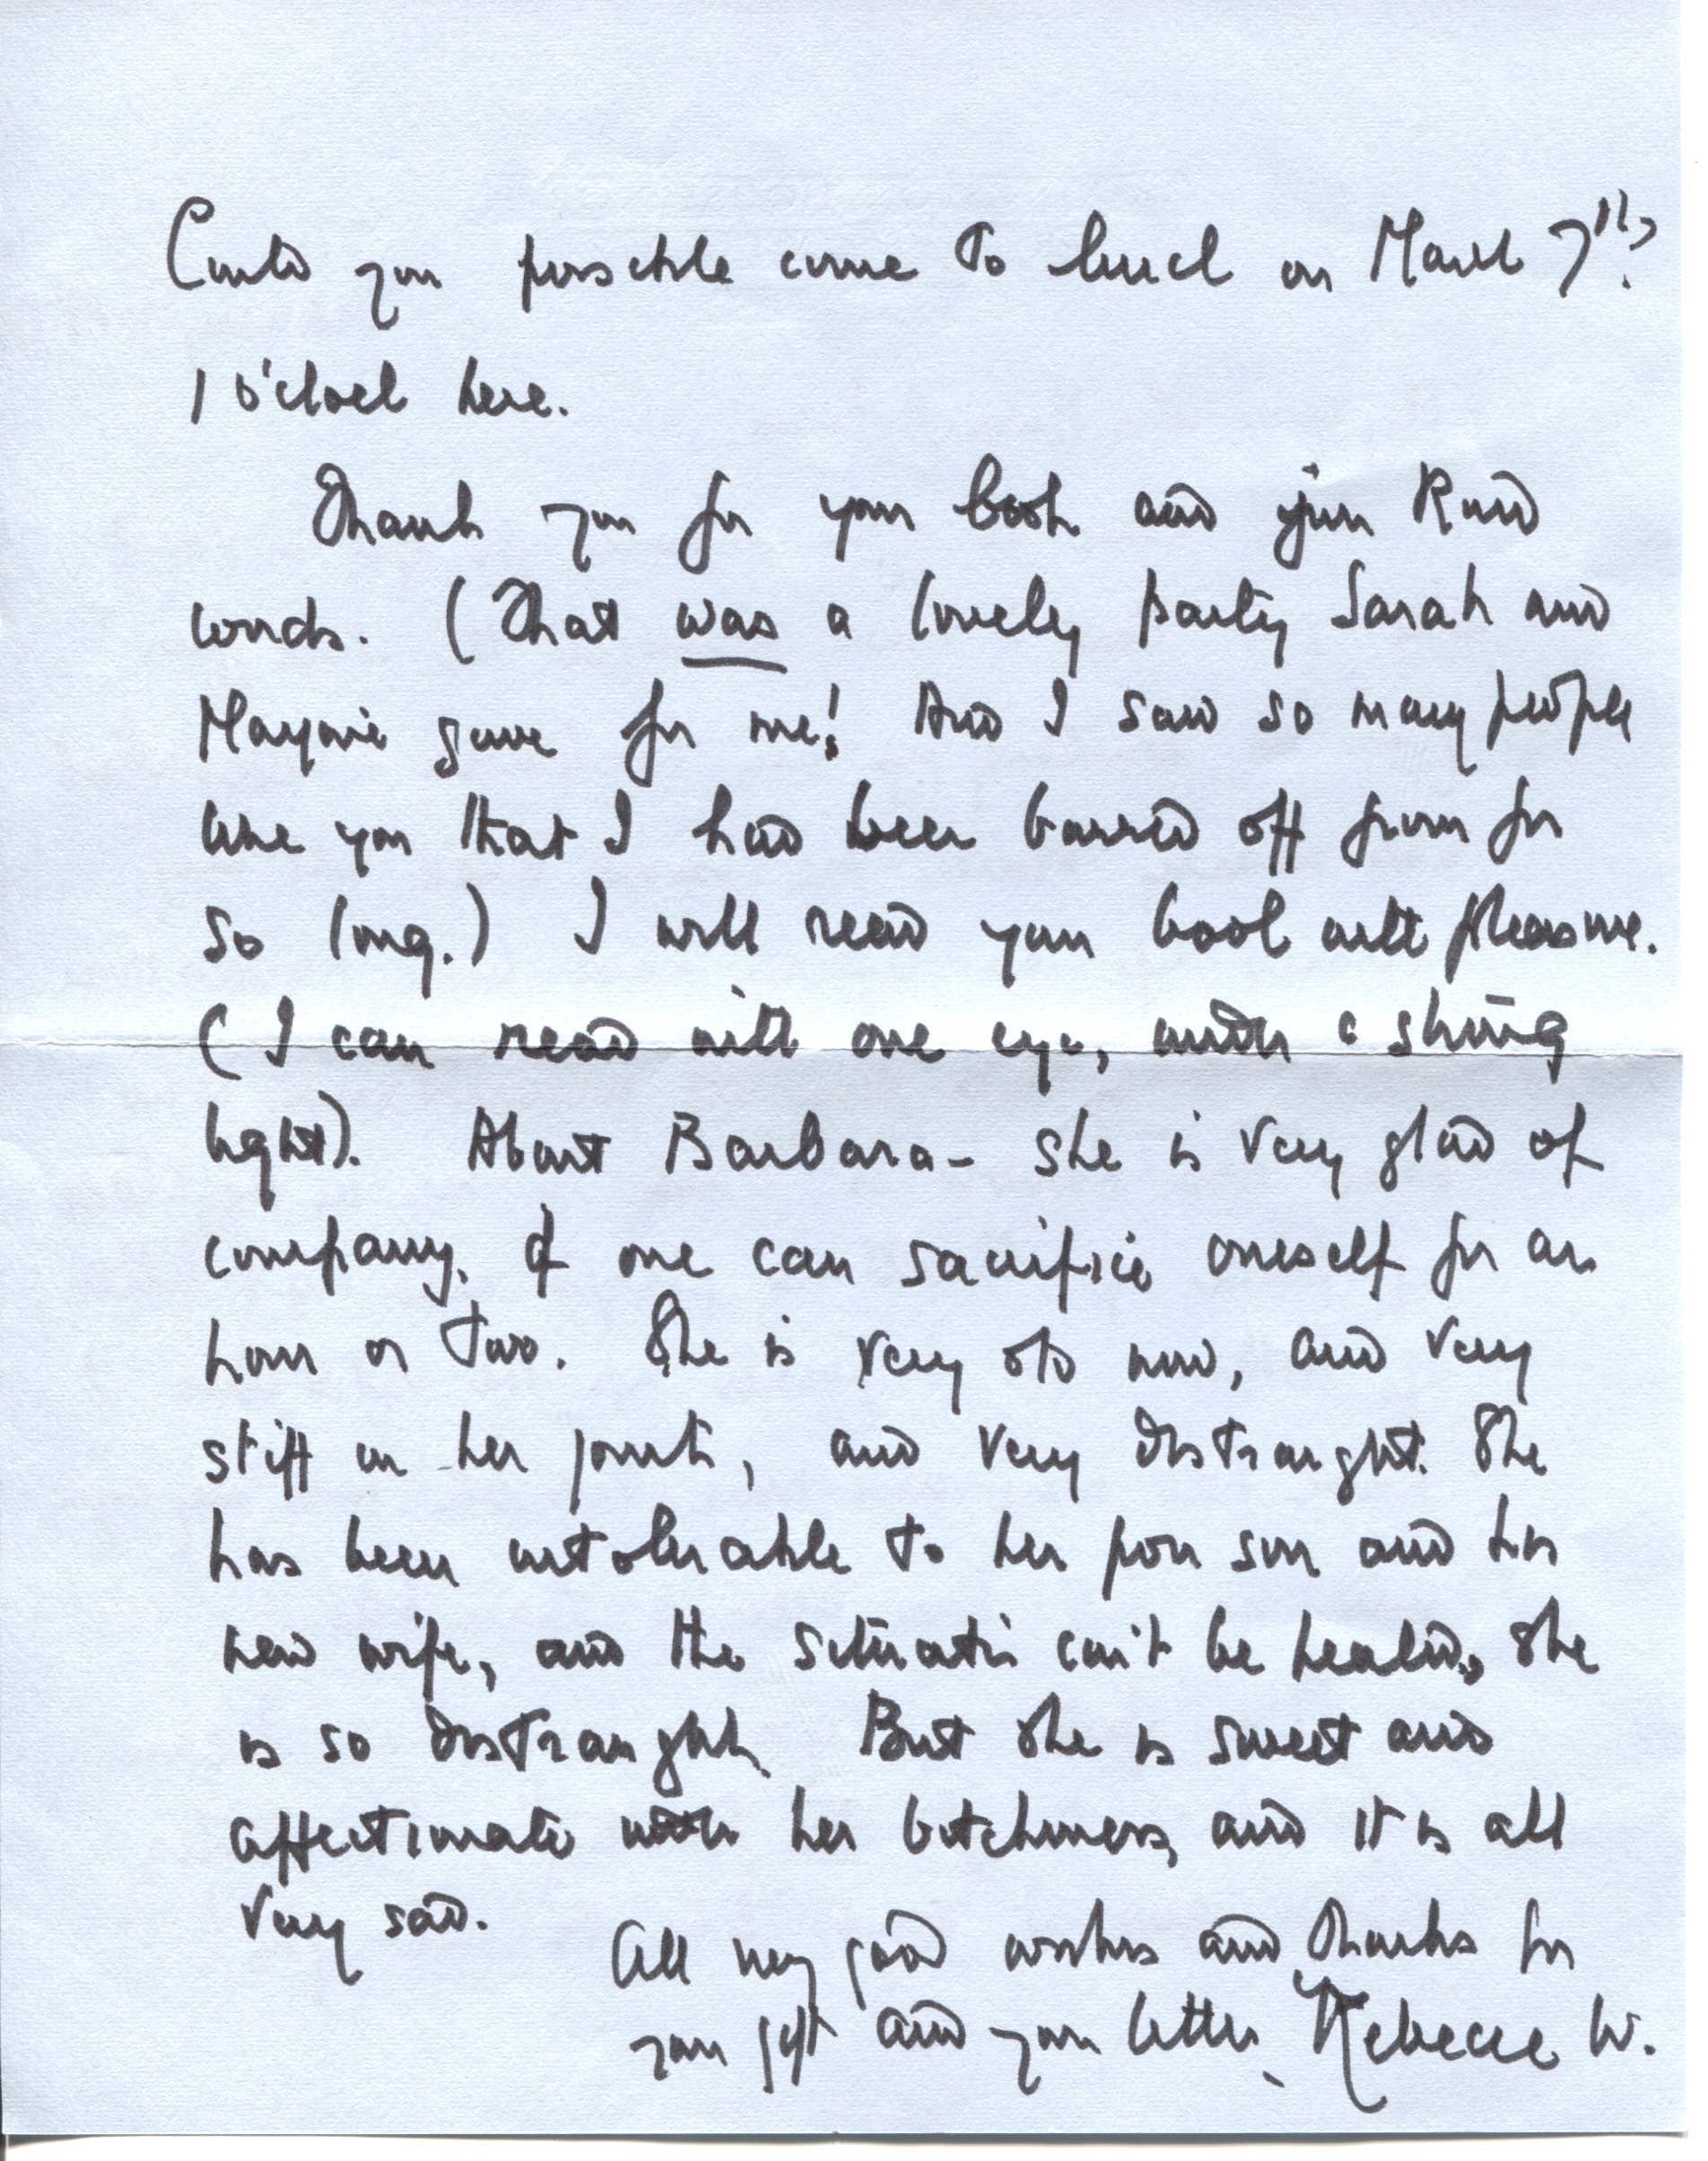 Could you possible come to lunch on March 7th?
1 o'clock here.
Thank you for your book and your kind
words. (That was a lovely party Sarah and
Marjorie gave for me! And I saw so many people
like you that I had been barred off from for
so long.) I will read your book with pleasure.
(I can read with one eye, with a strong
light). About Barbara - she is very glad of
company, if one can sacrifice oneself for an
hour or two. She is very old now, and very
stiff in her joints, and very distraught. She
has been intolerable to her poor son and his
new wife, and the situation can't be healed, she
is so distraught. But she is sweet and
affectionate with her butchness, and it is all
very sad.
All my good wishes and thanks for
your gift and your letter, Rebecca W.